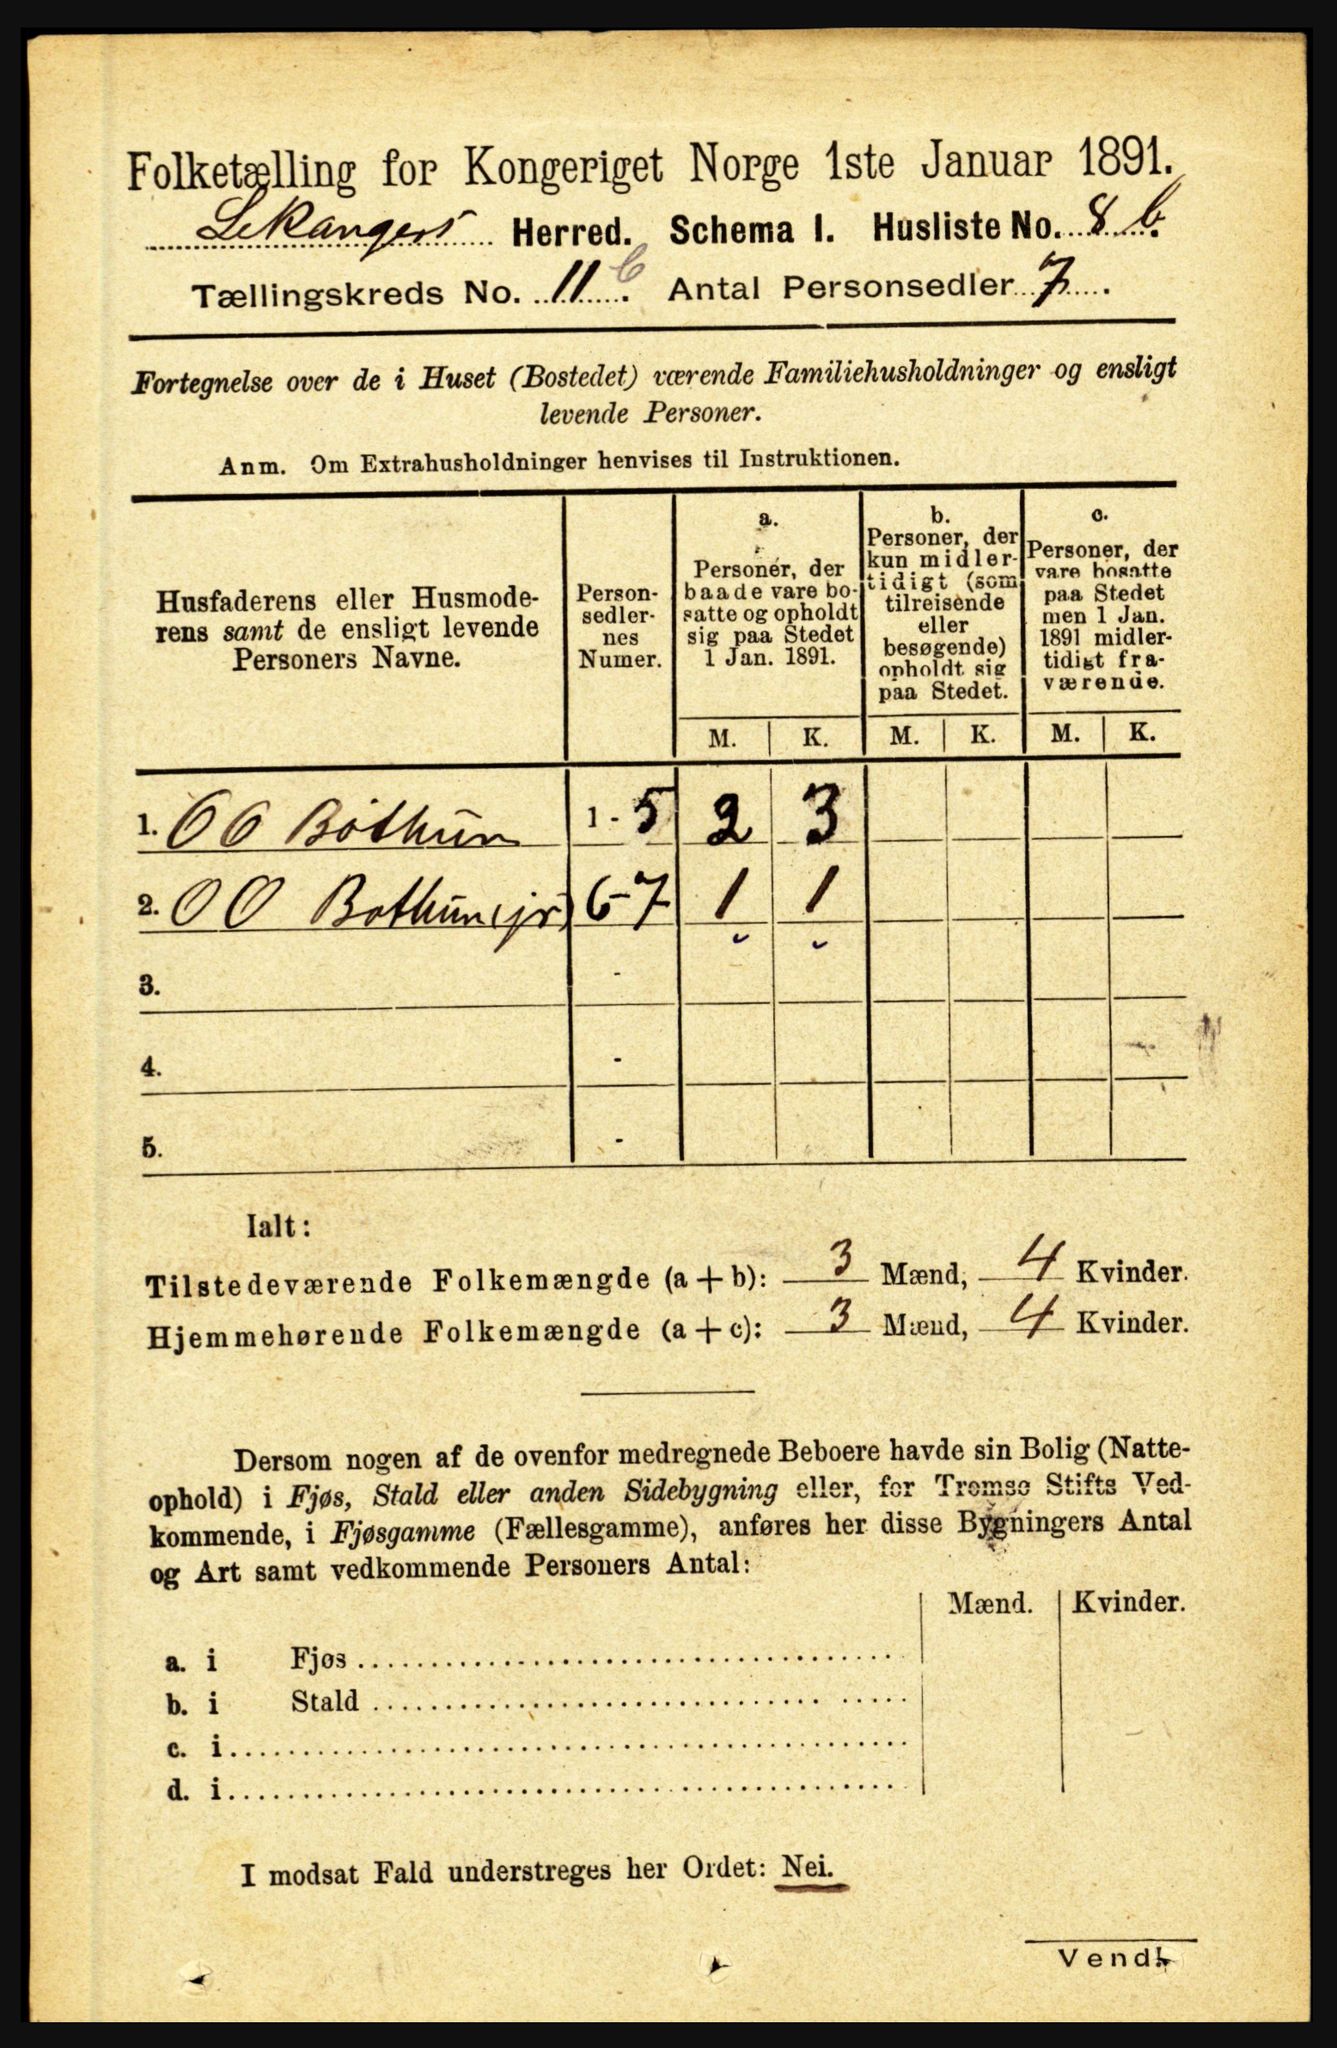 Folketælling for Kongeriget Norge 1ste Januar 1891.
Lekangers Herred. Schema I. Husliste No. 8 b.
Tællingskreds No. 11 b. Antal Personsedler 7.
Fortegnelse over de i Huset (Bostedet) værende Familiehusholdninger og ensligt
levende Personer.
Anm. Om Extrahusholdninger henvises til Instruktionen.
Husfaderens eller Husmode-
rens samt de ensligt levende
Personers Navne.
Person-
sedler-
nes
Numer.
a.
Personer, der
baade vare bo-
satte og opholdt
sig paa Stedet
1 Jan. 1891.
b.
Personer, der
kun midler-
tidigt (som
tilreisende
eller
besøgende)
opholdt sig
paa Stedet.
c.
Personer, der
vare bosatte
paa Stedet
men 1 Jan.
1891 midler-
tidigt fra-
værende.
M. K. M. K. M. K.
1. O O Bothun 1 - 5 2 3
2. O O Bothun (jr) 6-7 1 1
3. -
4. -
5. -
Ialt:
Tilstedeværende Folkemængde (a + b): 3 Mænd, 4 Kvinder.
Hjemmehørende Folkemængde (a + c): 3 Mænd, 4 Kvinder.
Dersom nogen af de ovenfor medregnede Beboere havde sin Bolig (Natte-
ophold) i Fjøs, Stald eller anden Sidebygning eller, for Tromsø Stifts Ved-
kommende, i Fjøsgamme (Fællesgamme), anføres her disse Bygningers Antal
og Art samt vedkommende Personers Antal:
Mænd. Kvinder.
a. i Fjøs
b. i Stald
c. i
d. i
I modsat Fald understreges her Ordet: Nei.
Vend!